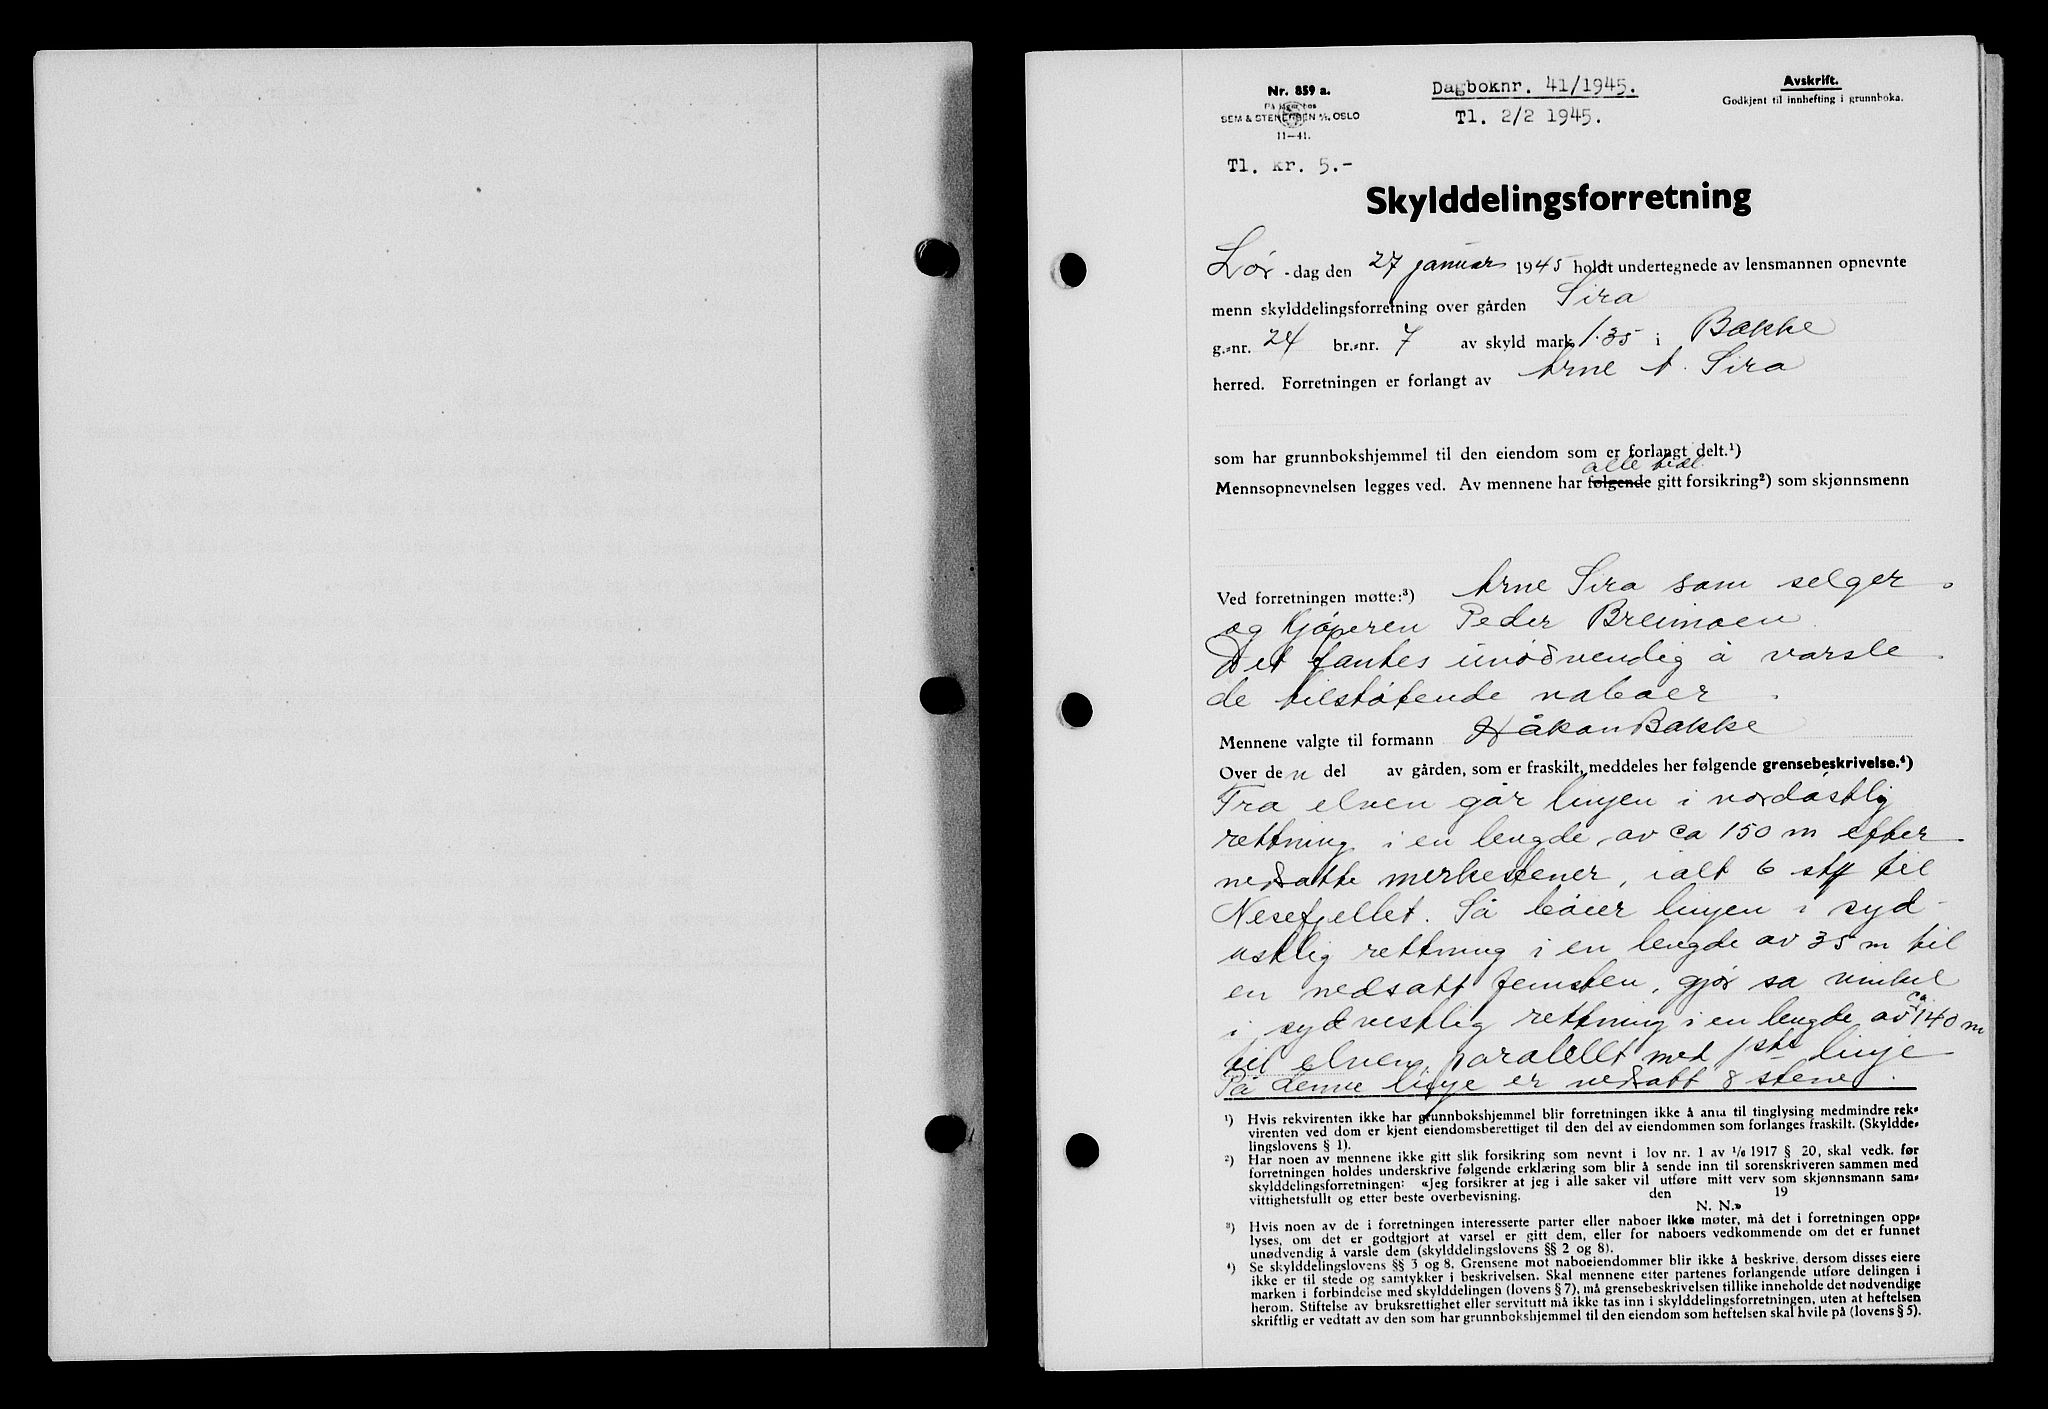 Nr. 859 a.
På lager hos
SEM & STENERSEN A/S, OSLO
11—41.
Dagboknr. 41/1945.
Tl. 2/2 1945.
Avskrift.
Godkjent til innhefting i grunnboka.
Tl. kr. 5.-
Skylddelingsforretning
Lør-dag den 27 januar 1945 holdt undertegnede av lensmannen opnevnte
menn skylddelingsforretning over gården Sira
g.-nr. 24 br.-nr. 7 av skyld mark 1.35 i Bakke
herred. Forretningen er forlangt av Arne A. Sira
som har grunnbokshjemmel til den eiendom som er forlangt delt.¹)
alle tidl.
Mennsopnevnelsen legges ved. Av mennene har følgende gitt forsikring²) som skjønnsmenn
Ved forretningen møtte:³) Arne Sira som selger
og Kjøperen Peder Breimoen.
Det fantes unødvendig å varsle
de tilstøtende naboer.
Mennene valgte til formann Håkon Bakke
Over den del av gården, som er fraskilt, meddeles her følgende grensebeskrivelse.⁴)
Fra elven går linjen i nordøstlig
rettning i en lengde av ca 150 m efter
nedsatte merkestener, ialt 6 stk til
Nesefjellet. Så bøier linjen i syd-
østlig rettning i en lengde av 35 m til
en nedsatt sten, gjør så vinkel
i sydvestlig rettning i en lengde av ca 140 m
til elven, paralellt med 1ste linje
På denne linje er nedsatt 8 stener.
¹) Hvis rekvirenten ikke har grunnbokshjemmel blir forretningen ikke å anta til tinglysing medmindre rek-
virenten ved dom er kjent eiendomsberettiget til den del av eiendommen som forlanges fraskilt. (Skyldde-
lingslovens § 1).
²) Har noen av mennene ikke gitt slik forsikring som nevnt i lov nr. 1 av 1/6 1917 § 20, skal vedk. før
forretningen holdes underskrive følgende erklæring som blir å sende inn til sorenskriveren sammen med
skylddelingsforretningen: «Jeg forsikrer at jeg i alle saker vil utføre mitt verv som skjønnsmann sam-
vittighetsfullt og etter beste overbevisning. den 19
N. N.»
³) Hvis noen av de i forretningen interesserte parter eller naboer ikke møter, må det i forretningen opp-
lyses, om det er godtgjort at varsel er gitt dem, eller for naboers vedkommende om det er funnet
unødvendig å varsle dem (skylddelingslovens §§ 2 og 8).
⁴) Se skylddelingslovens §§ 3 og 8. Grensene mot naboeiendommer blir ikke å beskrive, dersom disses eiere
ikke er til stede og samtykker i beskrivelsen. Skal mennene etter partenes forlangende utføre delingen i
marken i forbindelse med skylddelingen (lovens § 7), må grensebeskrivelsen tillike inneholde det nødvendige
herom. Stiftelse av bruksrettighet eller servitutt må ikke tas inn i skylddelingsforretningen, uten at heftelsen
skriftlig er vedtatt av den som har grunnbokshjemmel til den eiendom som heftelsen skal hvile på (lovens § 5).